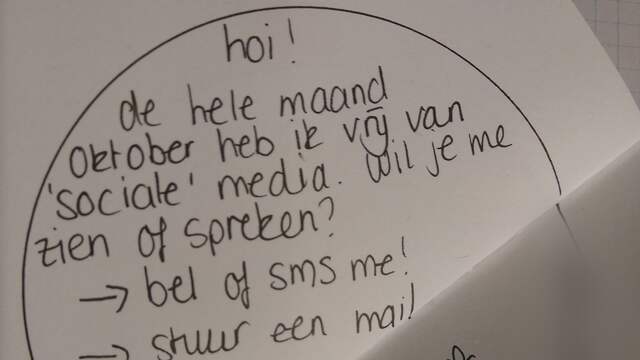 hoi!
de hele maand
oktober heb ik vrij van
'sociale' media. Wil je me
zien of spreken?
→ bel of sms me!
→ stuur een mail